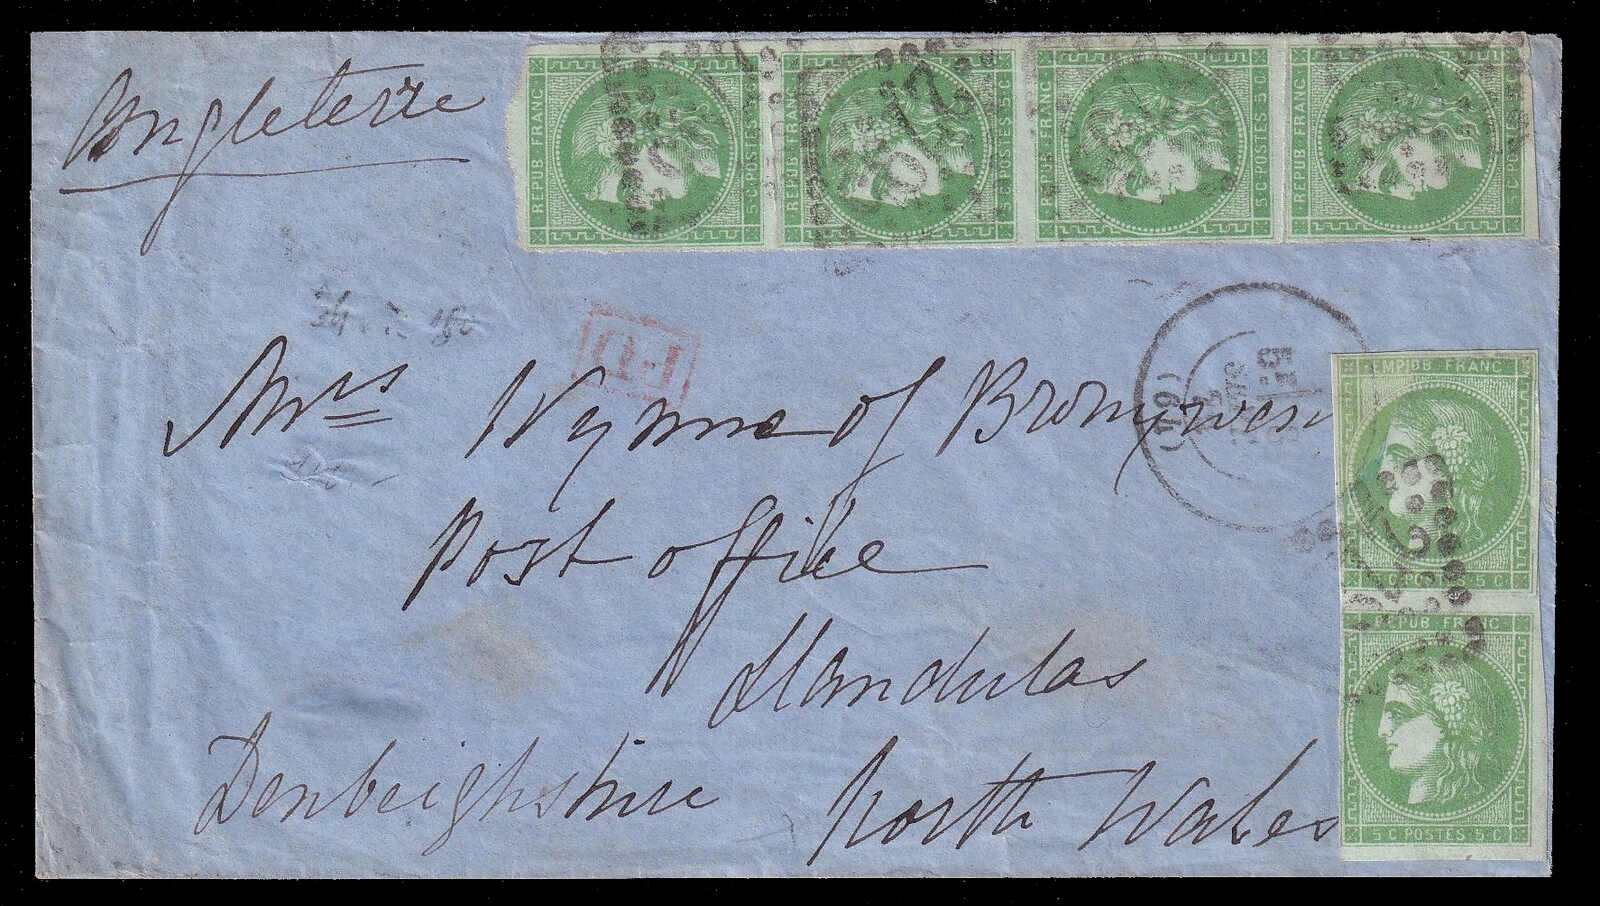 Angleterre
REPUB FRANC
5 C POSTES 5 C
REPUB FRANC
5 C POSTES 5 C
REPUB FRANC
5 C POSTES 5 C
REPUB FRANC
5 C POSTES 5 C
PD
Mrs Wynne of
Post Office
Llandulas
Denbeighshire North Wales
(19)
FRANC
C POSTES 5 C
EPUB FRANC
5 C POSTES 5 C